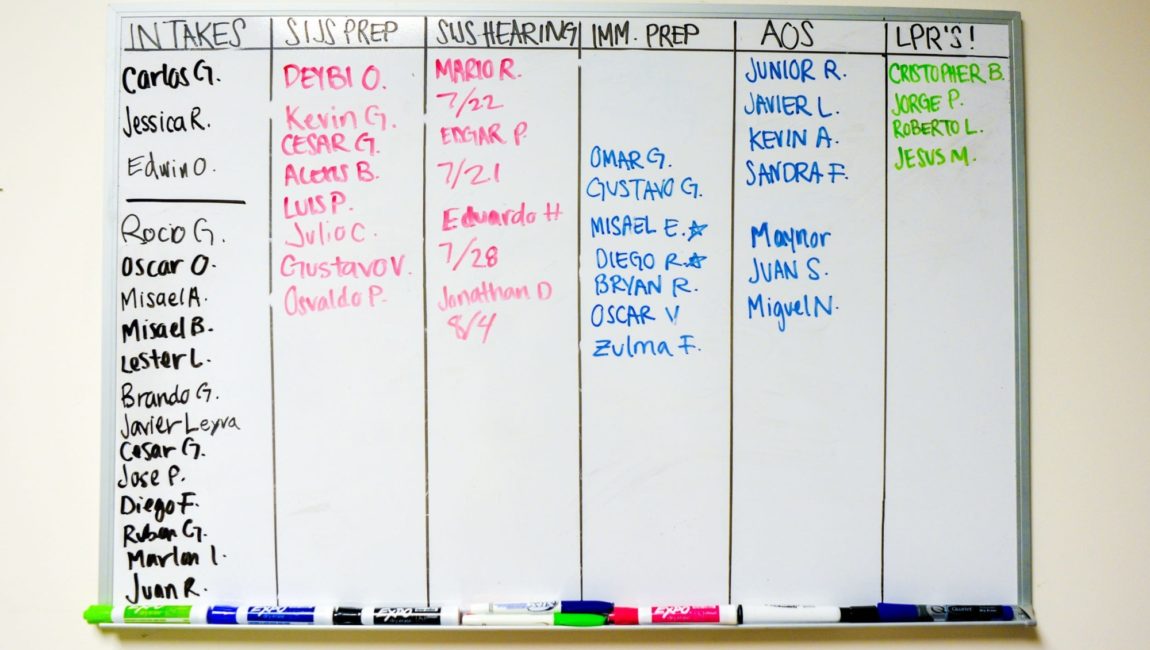 INTAKES
Carlos G.
Jessica R.
Edwin O.
Rocio G.
Oscar O.
Misael A.
Misael B.
Lester L.
Brando G.
Javier Leyva
Cesar G.
Jose P.
Diego F.
Ruben G.
Marlon I.
Juan R.
SIJS PREP
DEYBI O.
Kevin G.
CESAR G.
Alexis B.
LUIS P.
Julio C.
Gustavo V.
Osvaldo P.
SIJS HEARING
MARIO R.
7/22
EDGAR P.
7/21
Eduardo H
7/28
Jonathan D
8/4
IMM. PREP
OMAR G.
GUSTAVO G.
MISAEL E.
DIEGO R.
BRYAN R.
OSCAR V
Zulma F.
AOS
JUNIOR R.
JAVIER L.
KEVIN A.
SANDRA F.
Maynor
JUAN S.
Miguel N.
LPR'S!
CRISTOPHER B.
JORGE P.
ROBERTO L.
JESUS M.
EXPO
EXPO
EXPO
EXPO
Quartet